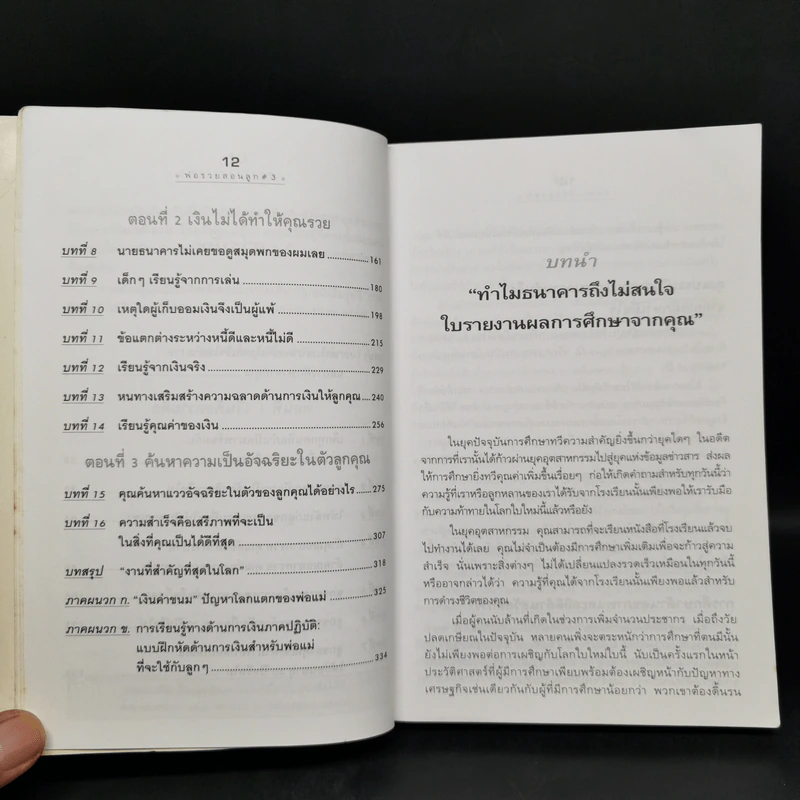 12
พ่อรวยสอนลูก # 3
ตอนที่ 2 เงินไม่ได้ทำให้คุณรวย
บทที่ 8 นายธนาคารไม่เคยขอดูสมุดพกของผมเลย 161
บทที่ 9 เด็กๆ เรียนรู้จากการเล่น 180
บทที่ 10 เหตุใดผู้เก็บออมเงินจึงเป็นผู้แพ้ 198
บทที่ 11 ข้อแตกต่างระหว่างหนี้ดีและหนี้ไม่ดี 215
บทที่ 12 เรียนรู้จากเงินจริง 229
บทที่ 13 หนทางเสริมสร้างความฉลาดด้านการเงินให้ลูกคุณ 240
บทที่ 14 เรียนรู้คุณค่าของเงิน 256
ตอนที่ 3 ค้นหาความเป็นอัจฉริยะในตัวลูกคุณ
บทที่ 15 คุณค้นหาแววอัจฉริยะในตัวของลูกคุณได้อย่างไร 275
บทที่ 16 ความสำเร็จคือเสรีภาพที่จะเป็น
ในสิ่งที่คุณเป็นได้ดีที่สุด 307
บทสรุป "งานที่สำคัญที่สุดในโลก" 318
ภาคผนวก ก. "เงินค่าขนม" ปัญหาโลกแตกของพ่อแม่ 325
ภาคผนวก ข. การเรียนรู้ทางด้านการเงินภาคปฏิบัติ:
แบบฝึกหัดด้านการเงินสำหรับพ่อแม่
ที่จะใช้กับลูกๆ 334
บทนำ
“ทำไมธนาคารถึงไม่สนใจ
ใบรายงานผลการศึกษาจากคุณ”
ในยุคปัจจุบันการศึกษาทวีความสำคัญยิ่งขึ้นกว่ายุคใดๆ ในอดีต
จากการที่เรานั้นได้ก้าวผ่านยุคอุตสาหกรรมไปสู่ยุคแห่งข้อมูลข่าวสาร ส่งผล
ให้การศึกษายิ่งทวีคุณค่าเพิ่มขึ้นเรื่อยๆ ก่อให้เกิดคำถามสำหรับทุกวันนี้ว่า
ความรู้ที่เราหรือลูกหลานของเราได้รับจากโรงเรียนนั้นเพียงพอให้เรารับมือ
กับความท้าทายในโลกใบใหม่นี้แล้วหรือยัง
ในยุคอุตสาหกรรม คุณสามารถที่จะเรียนหนังสือที่โรงเรียนแล้วจบ
ไปทำงานได้เลย คุณไม่จำเป็นต้องมีการศึกษาเพิ่มเติมเพื่อจะก้าวสู่ความ
สำเร็จ นั่นเพราะสิ่งต่างๆ ไม่ได้เปลี่ยนแปลงรวดเร็วเหมือนในทุกวันนี้
หรืออาจกล่าวได้ว่า ความรู้ที่คุณได้จากโรงเรียนนั้นเพียงพอแล้วสำหรับ
การดำรงชีวิตของคุณ
เมื่อผู้คนนับล้านที่เกิดในช่วงการเพิ่มจำนวนประชากร เมื่อถึงวัย
ปลดเกษียณในปัจจุบัน หลายคนเพิ่งจะตระหนักว่าการศึกษาที่ตนมีนั้น
ยังไม่เพียงพอต่อการเผชิญกับโลกใบใหม่ใบนี้ นับเป็นครั้งแรกในหน้า
ประวัติศาสตร์ที่ผู้มีการศึกษาเพียบพร้อมต้องเผชิญหน้ากับปัญหาทาง
เศรษฐกิจเช่นเดียวกันกับผู้ที่มีการศึกษาน้อยกว่า พวกเขาต้องดิ้นรน